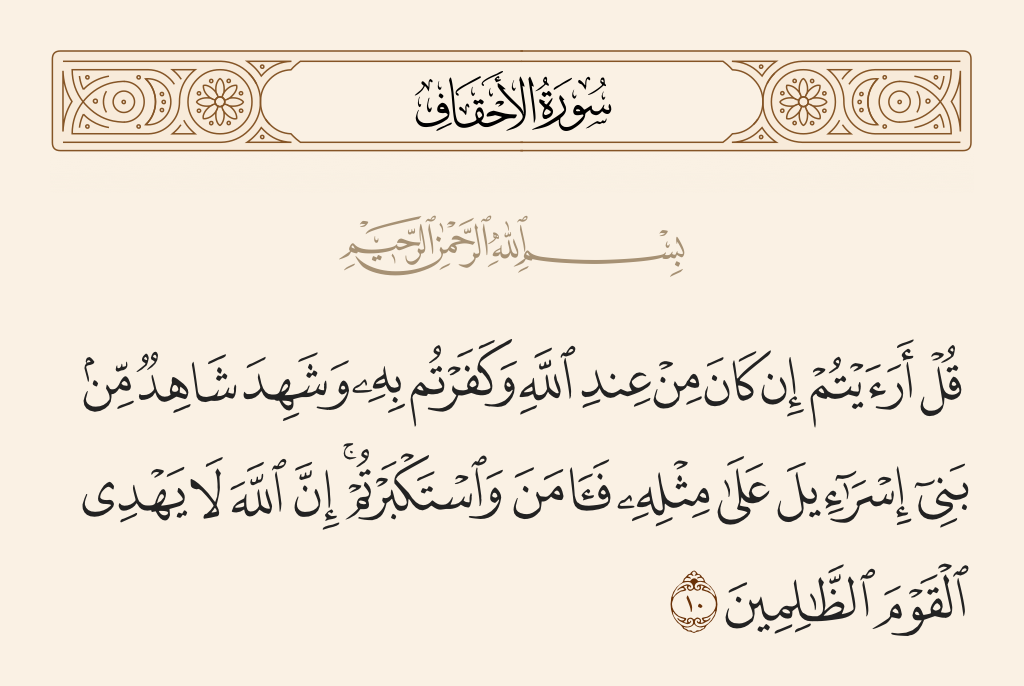 سُورَةُ الأَحْقَافِ
بِسْمِ ٱللَّهِ ٱلرَّحْمَٰنِ ٱلرَّحِيمِ
قُلْ أَرَءَيْتُمْ إِن كَانَ مِنْ عِندِ ٱللَّهِ وَكَفَرْتُم بِهِۦ وَشَهِدَ شَاهِدٌ مِّنۢ
بَنِىٓ إِسْرَٰٓءِيلَ عَلَىٰ مِثْلِهِۦ فَـَٔامَنَ وَٱسْتَكْبَرْتُمْ ۚ إِنَّ ٱللَّهَ لَا يَهْدِى
ٱلْقَوْمَ ٱلظَّٰلِمِينَ ١٠